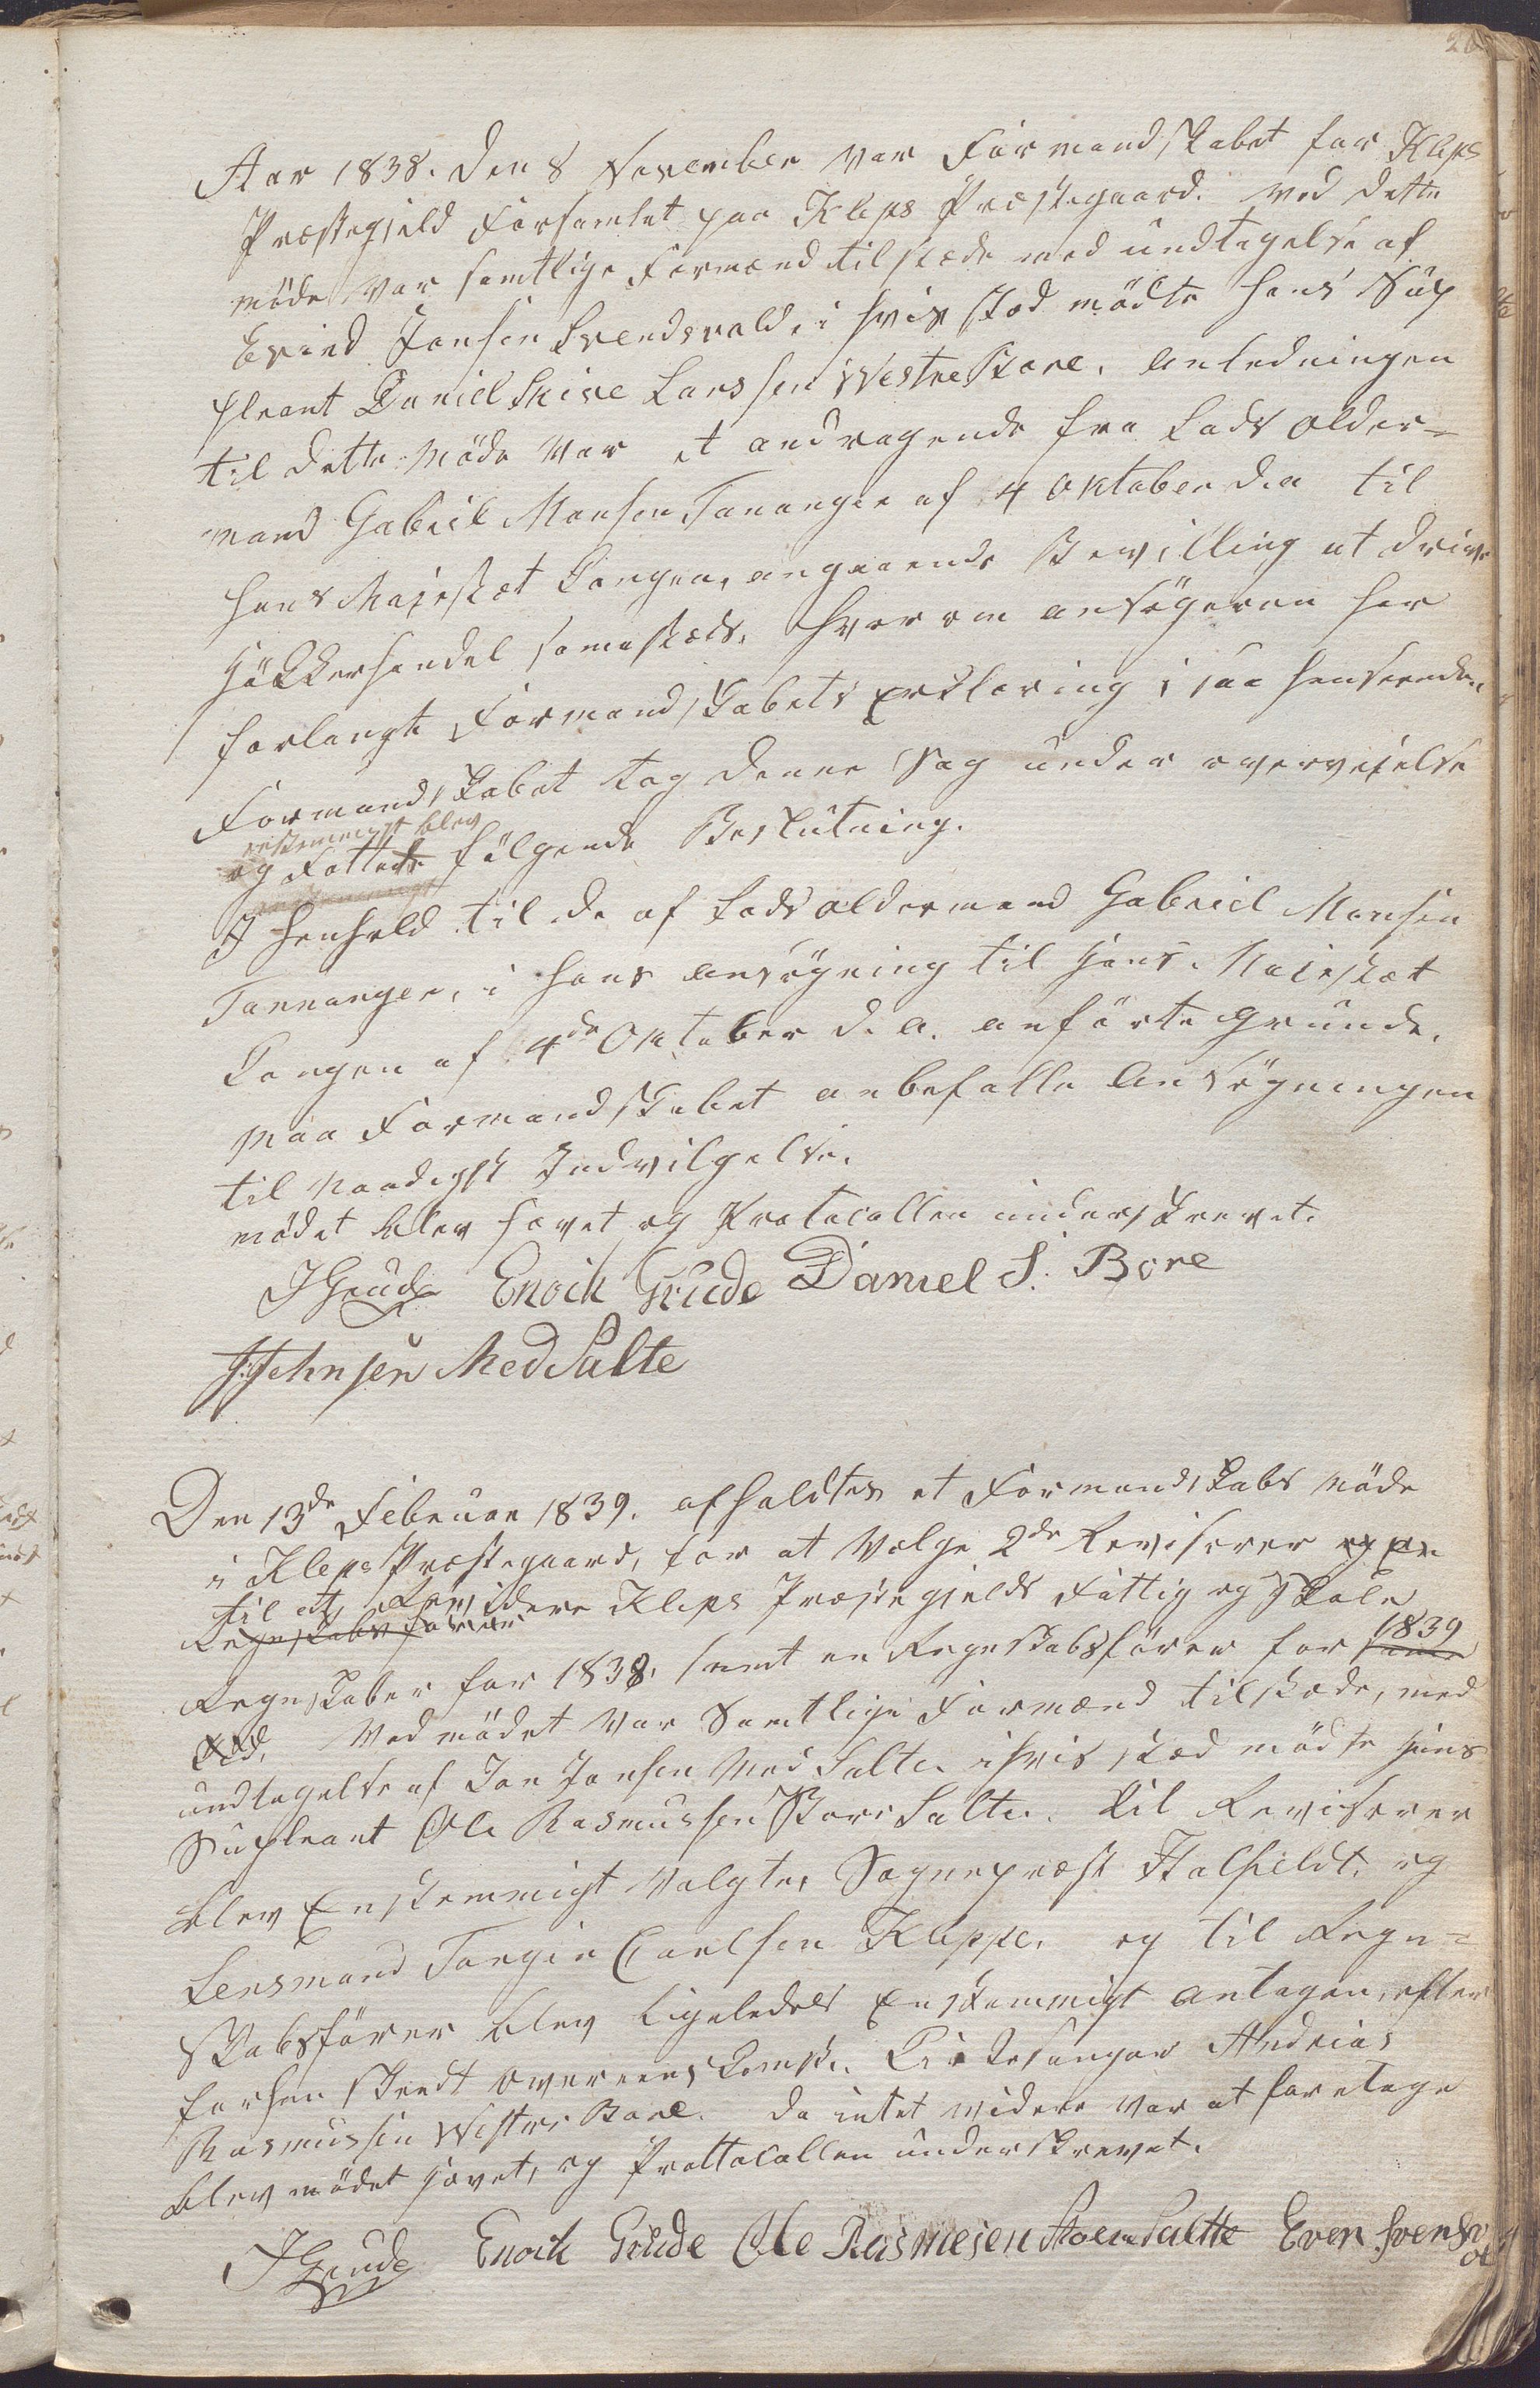 20
Aar 1838. den 8 November var Formandskabet for Kleps
Præstegjeld forsamlet paa Kleps Præstegaard. Ved dette
møde var samtlige Formænd tilstæde med undtagelse af
Evind Jonsen Svendsvold, i hvis stæd mødte hans Sup
pleant Daniel Larssen Westre Bore. Anledningen
til dette Møde var et andragende fra Lods Older-
mand Gabriel Monsen Tananger af 4 Oktober d.a til
hans Majestæt Kongen, angaaende Bevilling at drive
Høkkerhandel sammestæds, hvorom ansøgeren har
forlangt Formandskabets Erklæring i saa henseende.
Formandskabet tog denne Sag under overveielse
eenstemmigt blev
og fattede følgende Beslutning.
I henhold til de af Lods Oldermand Gabriel Monsen
Tannanger, i hans Ansøgning til Hans Majestæt
Kongen af 4de Oktober d.a. anførte grunde,
maa Formandskabet anbefalle Ansøgningen
til naadigst Indvilgelse.
mødet blev hævet og Protocollen underskrevet.
J Grude Enoch Grude Daniel S. Bore
J: Johnsen Med Salte
Den 13de Februar 1839. afholdtes et Formandskabs Møde
i Kleps Præstegaard, for at Vælge 2de Revisorer og en
Regnskabsfører
til at Revidere Kleps Præstegjelds Fattig og Skole
Regnskaber for 1838, samt en Regnskabsfører for samme 1839
Aar. Ved mødet var Samtlige Formænd tilstæde, med
undtagelse af Jon Jonsen Med Salte i hvis stæd mødte hans
Supleant Ole Rasmussen Store Salte. Til Revisorer
blev Enstemmigt Valgte, Sognepræst Halfeldt, og
Lensmand Torgier Carlsen Kleppe, og til Regn-
skabsfører blev ligeledes Enstemmigt antagen, efter
forhen skeedt overeenskomst. Kirkesanger Andreas
Rasmussen Westre Bore. Da intet videre var at foretage
blev mødet hævet, og Prottocollen underskrevet.
J Grude Enoch Grude Ole Rasmusen Store Saltte Even Svensv
ol